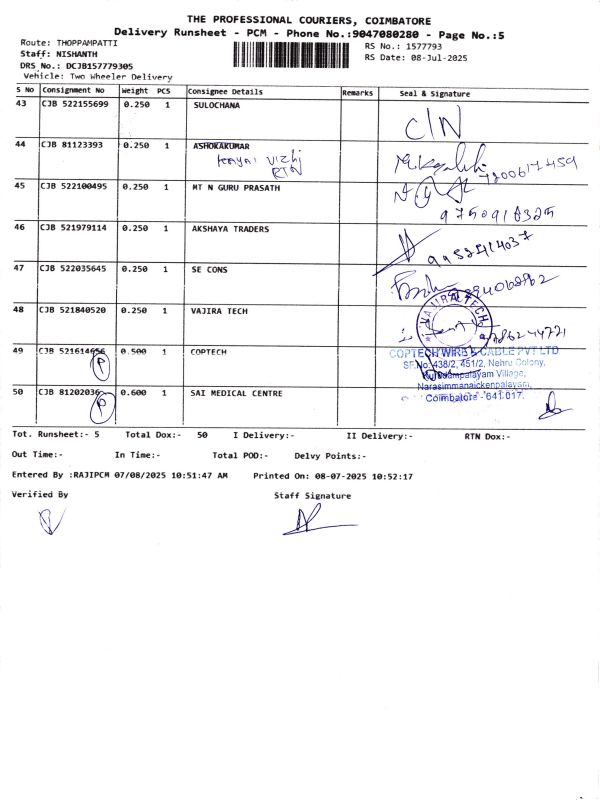 THE PROFESSIONAL COURIERS, COIMBATORE
Delivery Runsheet - PCM - Phone No.:9047080280 - Page No.:5
Route: THOPPAMPATTI
RS No.: 1577793
Staff: NISHANTH
RS Date: 08-Jul-2025
DRS_No.: DCJB157779305
Vehicle: Two Wheeler Delivery
S No Consignment No Weight PCS Consignee Details Remarks Seal & Signature
43 CJB 522155699 0.250 1 SULOCHANA
C/N
44 CJB 81123393 0.250 1 ASHOKAKUMAR
RTN
45 CJB 522100495 0.250 1 MT N GURU PRASATH
46 CJB 521979114 0.250 1 AKSHAYA TRADERS
47 CJB 522035645 0.250 1 SE CONS
48 CJB 521840520 0.250 1 VAJIRA TECH
VAJIRA TECH
49 CJB 521614656 0.500 1 COPTECH
P
COPTECH WIRE & CABLE PVT LTD
SF.No: 438/2, 451/2, Nehru Colony,
Village,
Narasimmanaickenpalayam,
Coimbatore - 641 017.
50 CJB 81202036 0.600 1 SAI MEDICAL CENTRE
P
Tot. Runsheet:- 5 Total Dox:- 50 I Delivery:- II Delivery:- RTN Dox:-
Out Time:- In Time:- Total POD:- Delvy Points:-
Entered By :RAJIPCM 07/08/2025 10:51:47 AM Printed On: 08-07-2025 10:52:17
Verified By Staff Signature